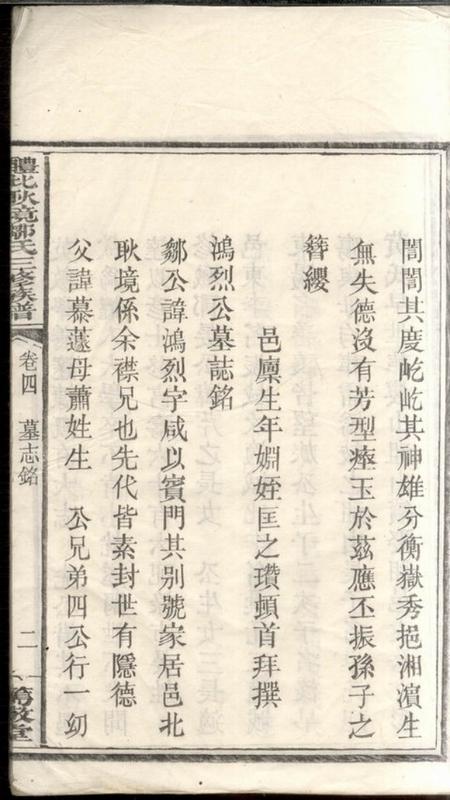 誾誾其度屹屹其神雄分衡嶽秀挹湘濵生
無失德沒有芳型瘞玉於茲應丕振孫子之
簮纓
邑廩生年姻姪匡之瓚頓首拜撰
鴻烈公墓誌銘
鄒公諱鴻烈字咸以賓門其别號家居邑北
耿境係余襟兄也先代皆素封世有隱德
父諱慕蘧母蕭姓生 公兄弟四公行一㓜
醴北耿境鄒氏三修族譜
卷四 墓志銘
二
敦堂